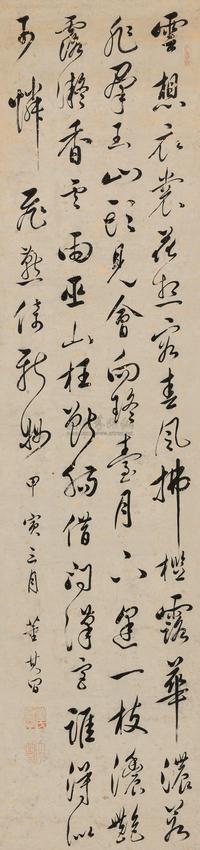 雲想衣裳花想容春風拂檻露華濃若
非羣玉山頭見會向瑤臺月下逢一枝濃艷
露凝香雲雨巫山枉斷腸借問漢宮誰得似
可憐飛燕倚新妝 甲寅三月 董其昌